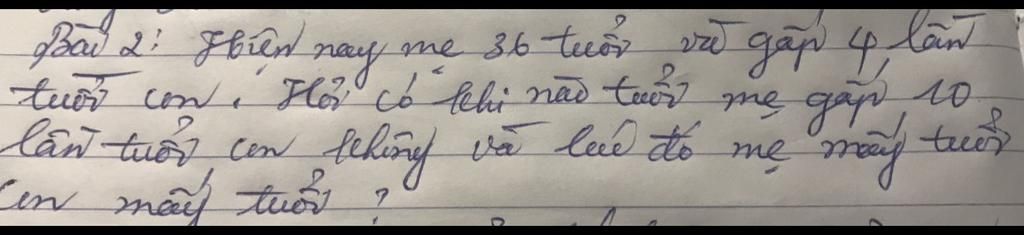 Bài 2: Hiện nay mẹ 36 tuổi và gấp 4 lần
tuổi con. Hỏi có khi nào tuổi mẹ gấp 10
lần tuổi con không và lúc đó mẹ mấy tuổi
con mấy tuổi ?